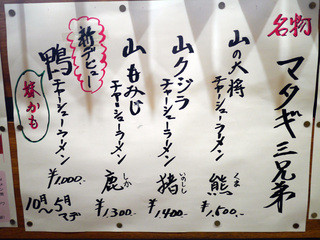 名物
マタギ三兄弟
山の大将
チャーシューラーメン
熊
くま
¥1,500~
山クジラ
チャーシューラーメン
猪
いのしし
¥1,400~
山もみじ
チャーシューラーメン
鹿
しか
¥1,300~
新デビュー
鴨
チャーシューラーメン
¥1,000~
10月~5月マデ
かも